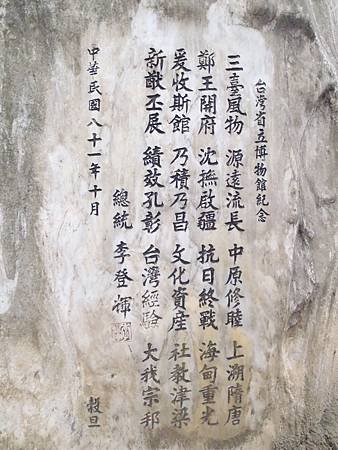 台灣省立博物館紀念
三臺風物 源遠流長 中原修睦 上溯隋唐
鄭王開府 沈撫啟疆 抗日終戰 海甸重光
爰收斯館 乃積乃昌 文化資產 社教津梁
新猷丕展 績效孔彰 台灣經驗 大我宗邦
總統 李登輝
中華民國八十一年十月 穀旦